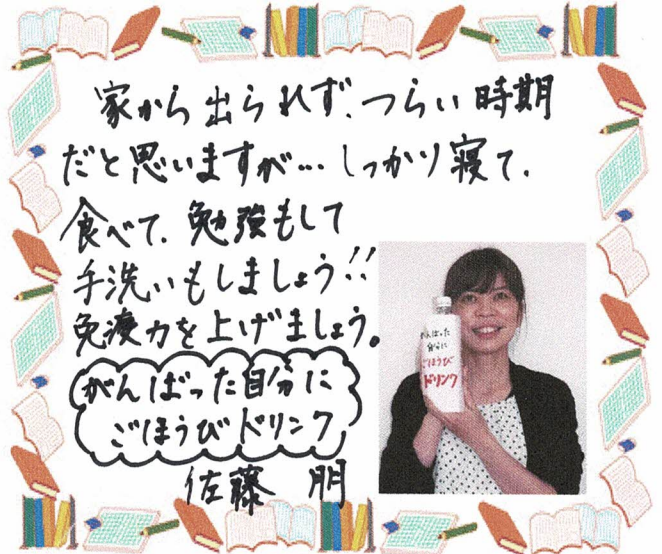 家から出られず、つらい時期
だと思いますが…しっかり寝て、
食べて、勉強もして
手洗いもしましょう!!
免疫力を上げましょう。
がんばった自分に
ごほうびドリンク
佐藤 朋
がんばった
自分に
ごほうび
ドリンク